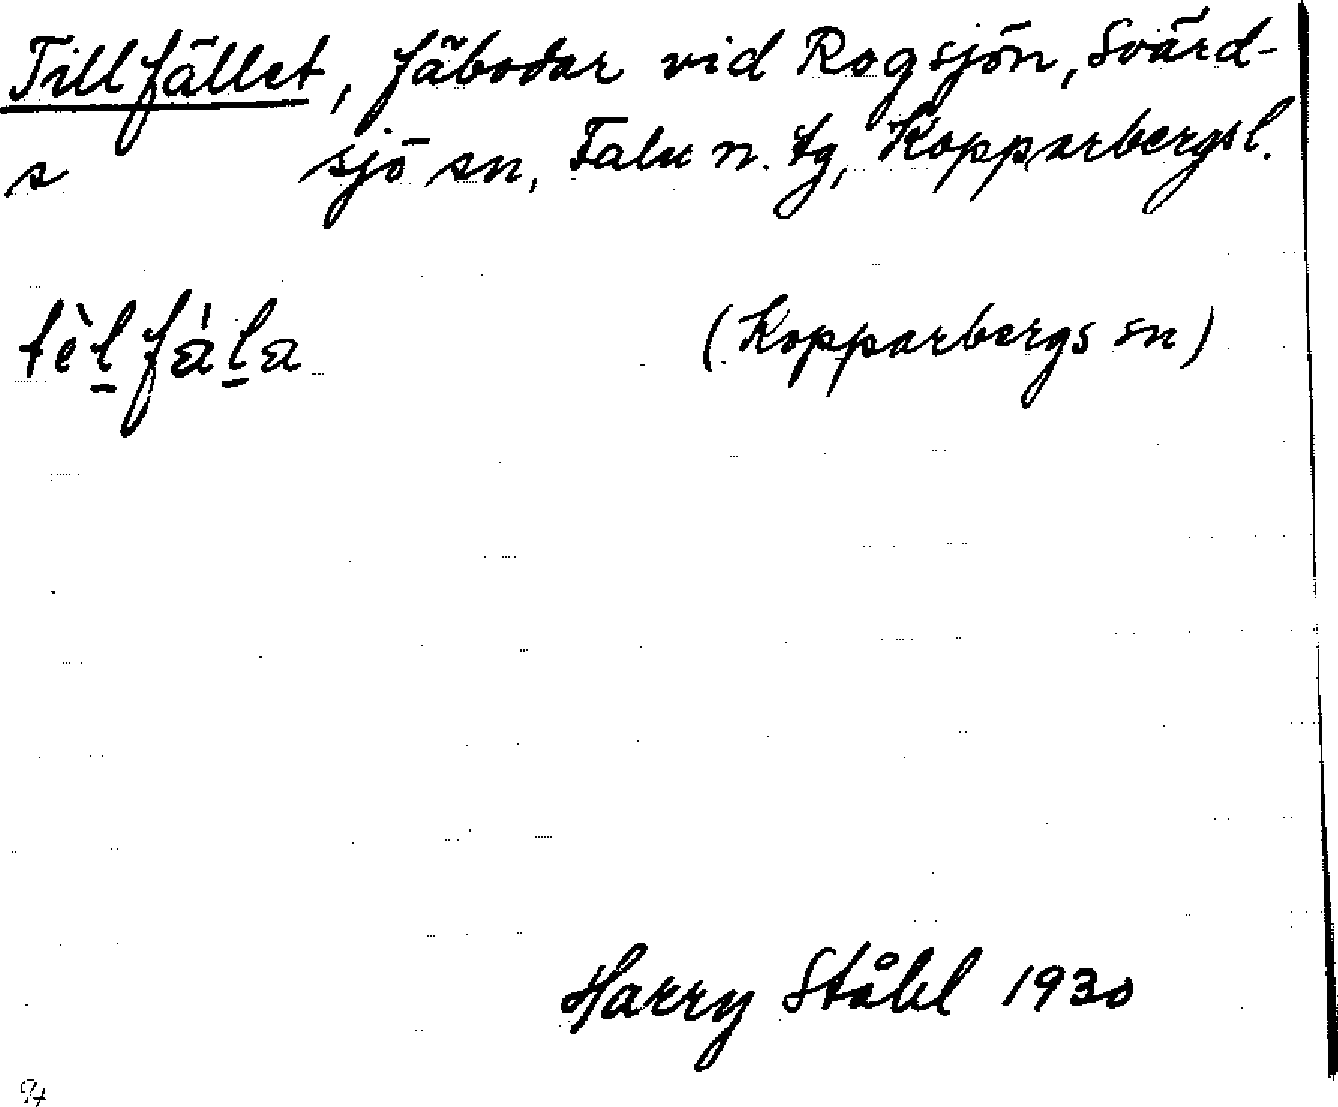 Tillfället, fäbodar vid Rogsjön, Svärd-
s sjö sn, Falu n. tg, Kopparbergs l.
tèl̲fál̲a (Kopparbergs sn)
Harry Ståhl 1930